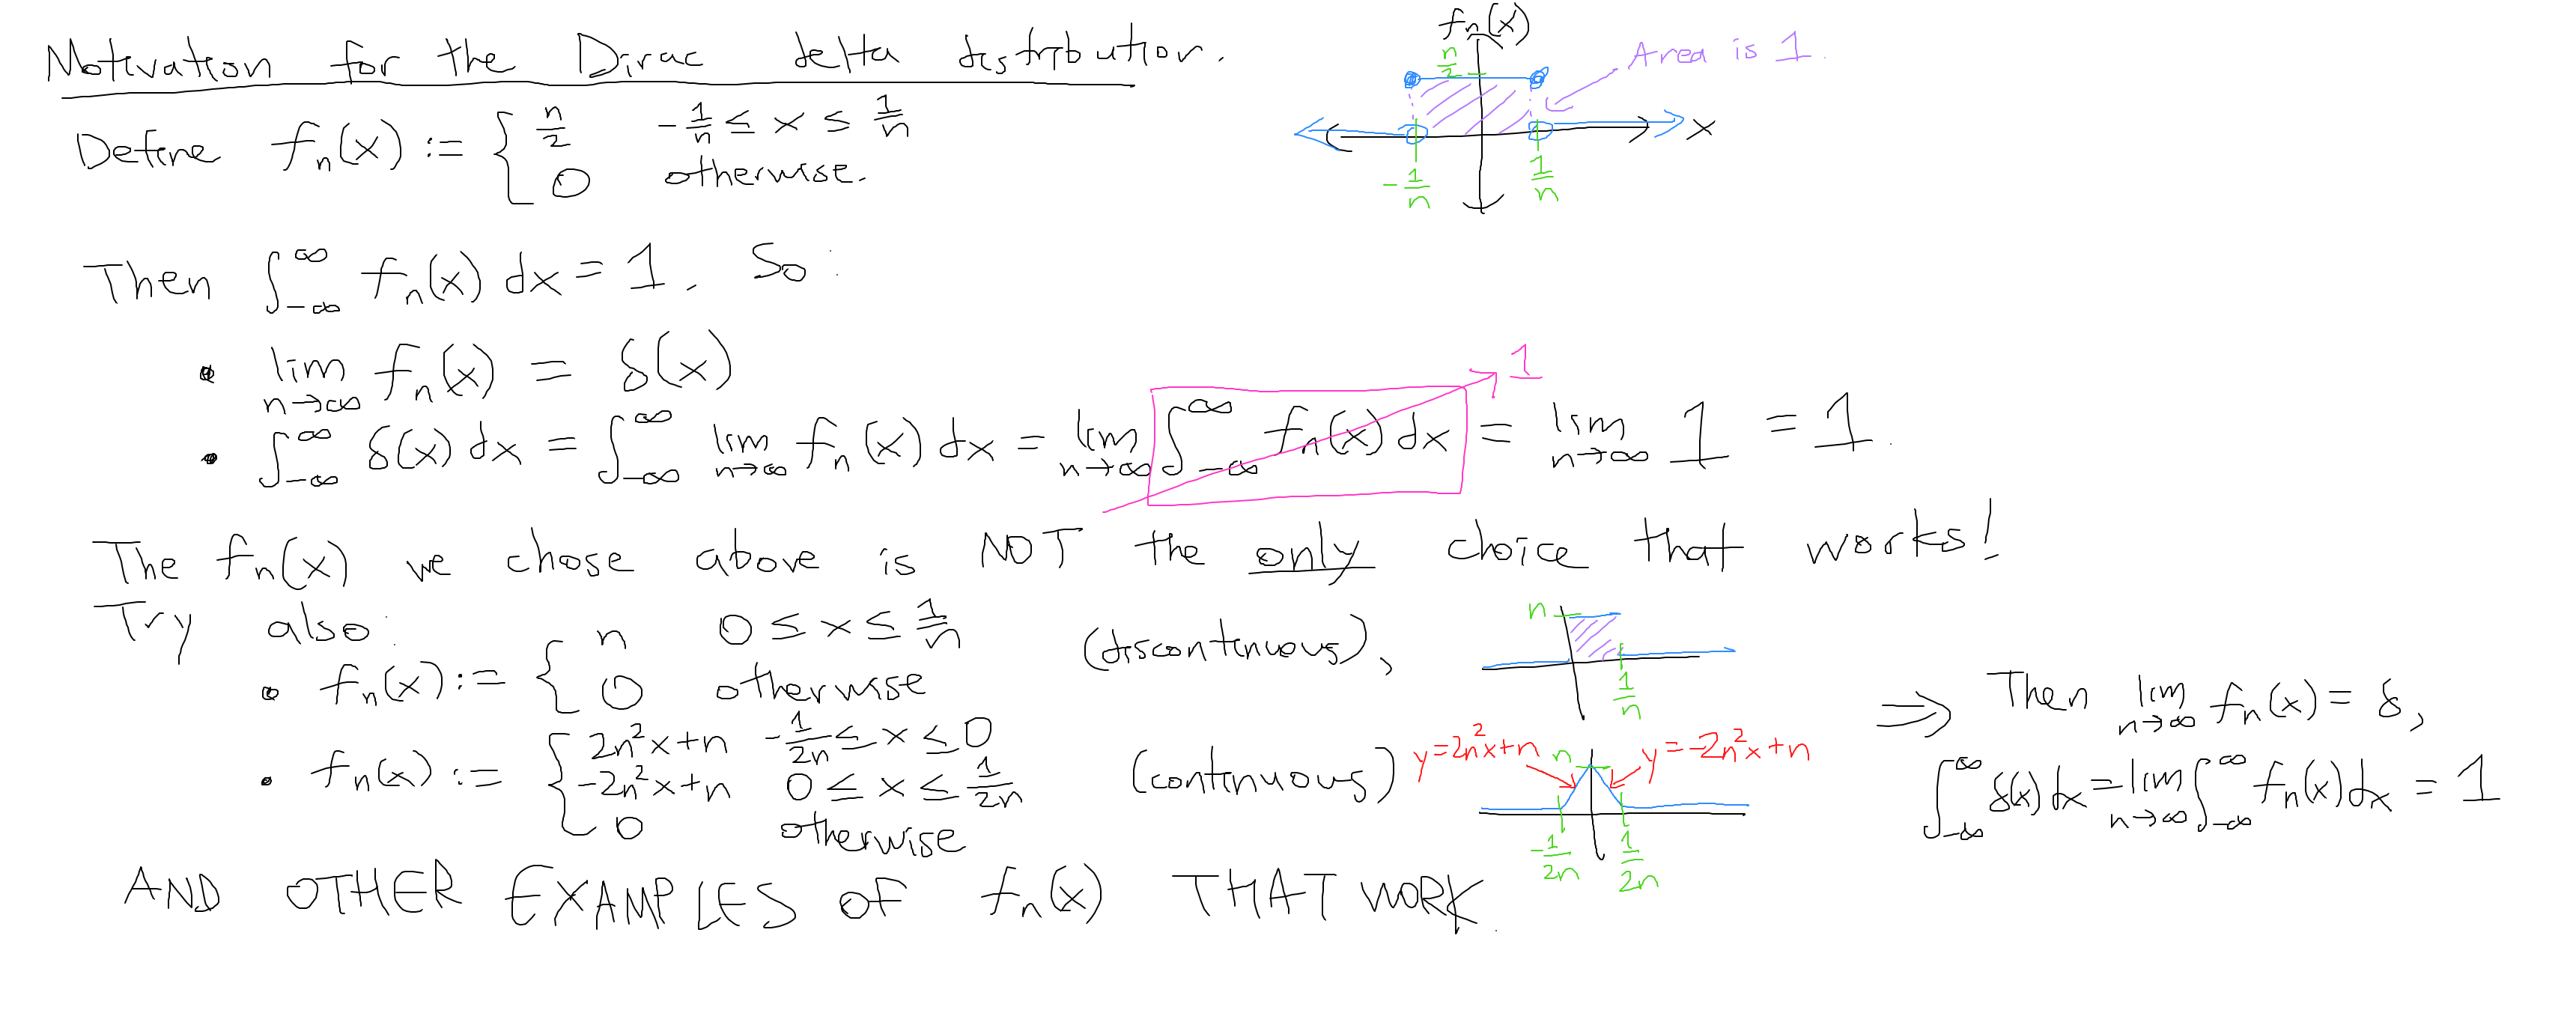 Motivation for the Dirac delta distribution.
Define fₙ(x) := { n/2   -1/n ≤ x ≤ 1/n
0   otherwise.
fₙ(x)
n/2
Area is 1.
x
-1/n
1/n
Then ∫_{-∞}^{∞} fₙ(x) dx = 1. So:
• lim_{n→∞} fₙ(x) = δ(x)
• ∫_{-∞}^{∞} δ(x) dx = ∫_{-∞}^{∞} lim_{n→∞} fₙ(x) dx = lim_{n→∞} ∫_{-∞}^{∞} fₙ(x) dx = lim_{n→∞} 1 = 1.
1
The fₙ(x) we chose above is NOT the only choice that works!
Try also:
• fₙ(x) := { n   0 ≤ x ≤ 1/n
0   otherwise
(discontinuous),
n
1/n
• fₙ(x) := { 2n²x+n   -1/2n ≤ x ≤ 0
-2n²x+n   0 ≤ x ≤ 1/2n
0   otherwise
(continuous)
y=2n²x+n
n
y=-2n²x+n
-1/2n
1/2n
⇒ Then lim_{n→∞} fₙ(x) = δ,
∫_{-∞}^{∞} δ(x) dx = lim_{n→∞} ∫_{-∞}^{∞} fₙ(x) dx = 1
AND OTHER EXAMPLES OF fₙ(x) THAT WORK.